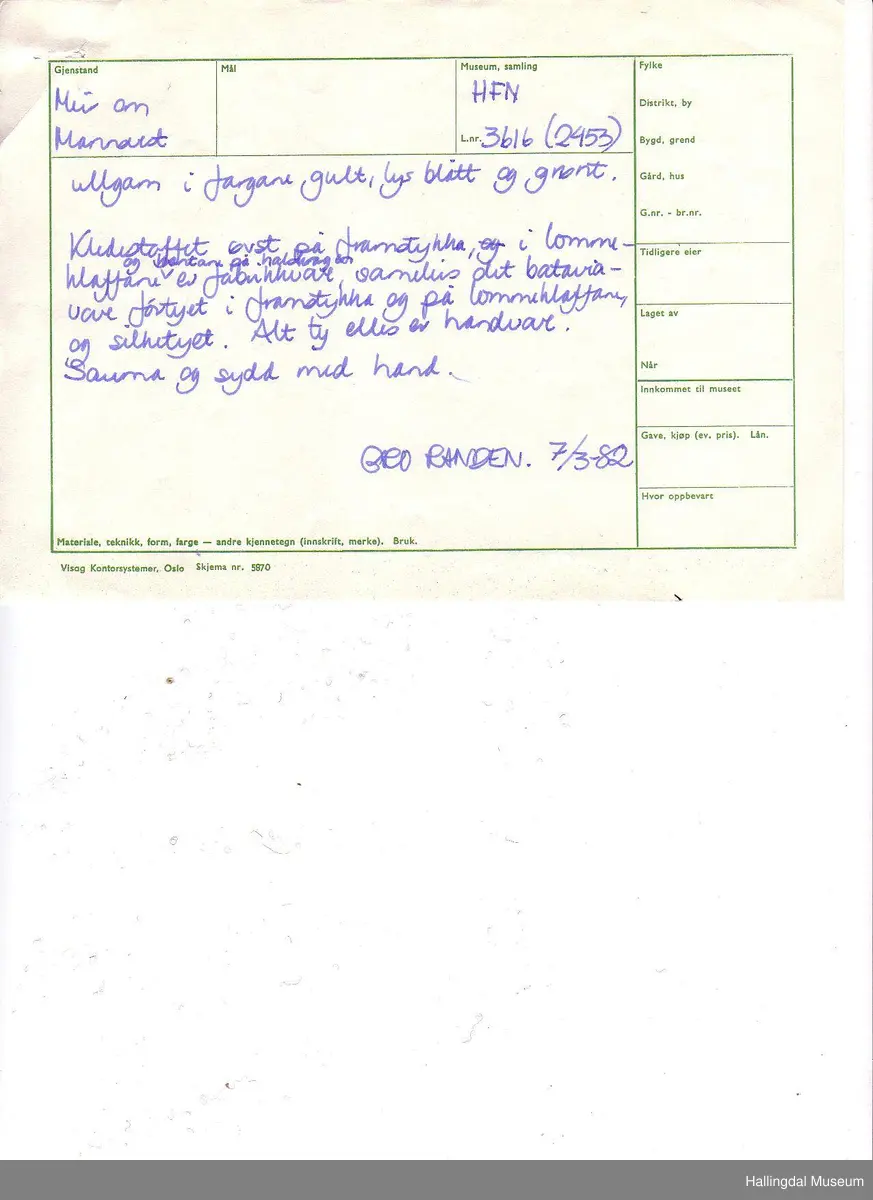 Gjenstand
Meir om
Mannard
Mål
Museum, samling
HFN
L.nr. 3616 (2453)
ullgarn i fargane, gult, lys blått og grønt.
Kledestoffet øvst på framstykka, og i lomme-
og kantane på haldinga
klaffane er fabrikkvove, sameleis det batavia-
vove fôrtyet i framstykka og på lommeklaffane,
og silketyet. Alt ty elles er handvove.
Sauma og sydd med hand.
GRO RANDEN. 7/3-82
Materiale, teknikk, form, farge — andre kjennetegn (innskrift, merke). Bruk.
Fylke
Distrikt, by
Bygd, grend
Gård, hus
G.nr. - br.nr.
Tidligere eier
Laget av
Når
Innkommet til museet
Gave, kjøp (ev. pris). Lån.
Hvor oppbevart
Visag Kontorsystemer, Oslo Skjema nr. 5870
Hallingdal Museum